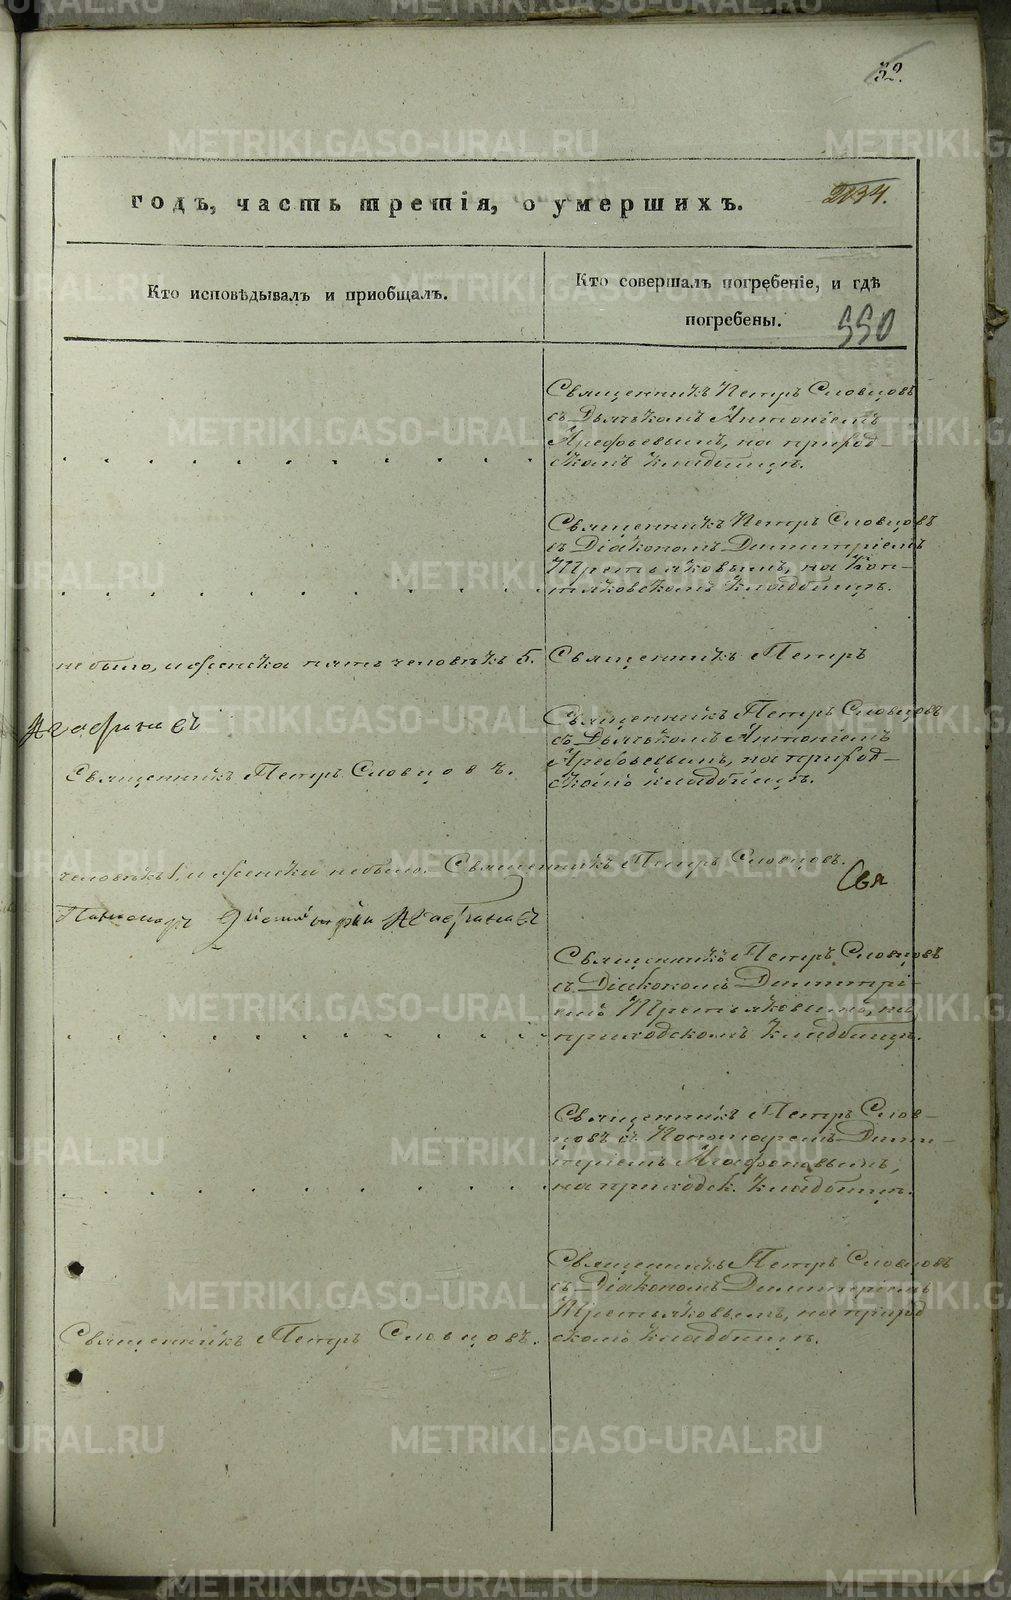 32.
годъ, часть третія, о умершихъ.
2134.
Кто исповѣдывалъ и пріобщалъ.
Кто совершалъ погребеніе, и гдѣ
погребены.
550
Священникъ Петръ Словцовъ
съ Дьячкомъ Антоніемъ
Арефьевымъ, на приход-
скомъ кладбищѣ.
Священникъ Петръ Словцовъ
съ Діакономъ Димитріемъ
Третьяковымъ, на Коп-
тяковскомъ кладбищѣ.
не было, и женска пять человѣкъ 5.
Священникъ Петръ
Агафоновъ
Священникъ Петръ Словцовъ.
Священникъ Петръ Словцовъ
съ Дьячкомъ Антоніемъ
Арефьевымъ, на приход-
скомъ кладбищѣ.
человѣкъ 1, и женска не было. Священникъ Петръ Словцовъ.
Свя
Пономарь Димитрій Агафоновъ
Священникъ Петръ Словцовъ
съ Діакономъ Димитрі-
емъ Третьяковымъ, на
приходскомъ кладбищѣ.
Священникъ Петръ Слов-
цовъ съ Пономаремъ Дими-
тріемъ Агафоновымъ,
на приходск. кладбищѣ.
Священникъ Петръ Словцовъ.
Священникъ Петръ Словцовъ
съ Діакономъ Димитріемъ
Третьяковымъ, на приход
скомъ кладбищѣ.
METRIKI.GASO-URAL.RU